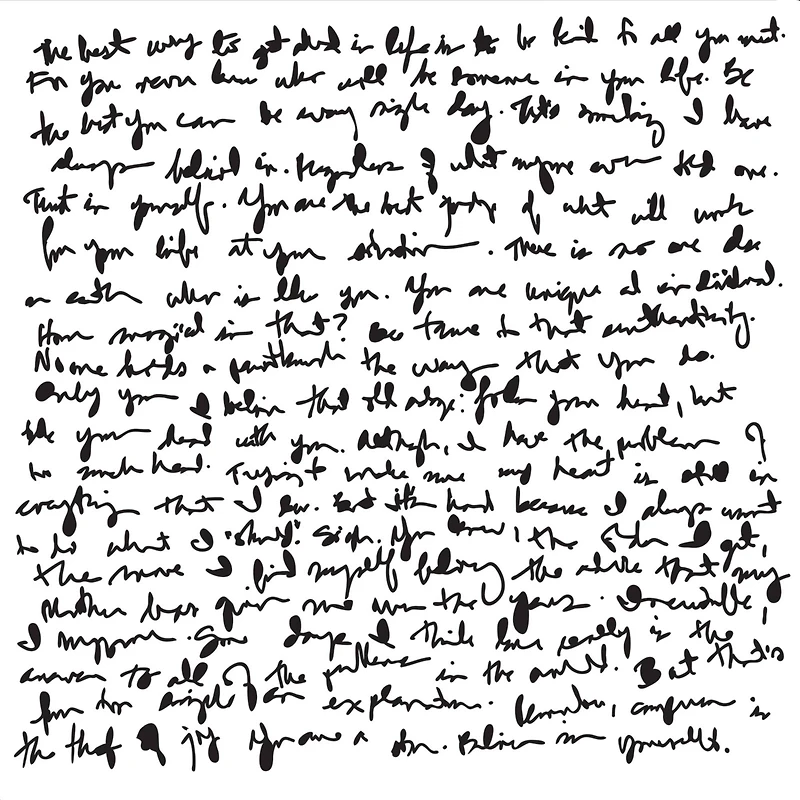 The best way to get ahead in life is to be kind to all you meet.
For you never know who will be someone in your life. Be
the best you can be every single day. That's something I have
always believed in. Regardless of what anyone ever told me.
Trust in yourself. You are the best judge of what will work
for you life at your. There is no one else
on earth who is like you. You are unique and individual.
How magical is that? Be true to that authenticity.
No one holds a paintbrush the way that you do.
Only you I believe that old adage: follow your heart, but
take your head with you. Although, I have the problem of
too much head. Trying to make sure my heart is still in
everything that I do. But it's hard because I always want
to do what I "should". Sigh. You know, the older I get,
the more I find myself following the advice that my
Mother has given me over the years. Incredible,
I suppose. Some days I think love really is the
answer to all of the problems in the world. But that's
far too simple of an explanation. comparison is
the thief of joy You are a star. Believe in yourself.